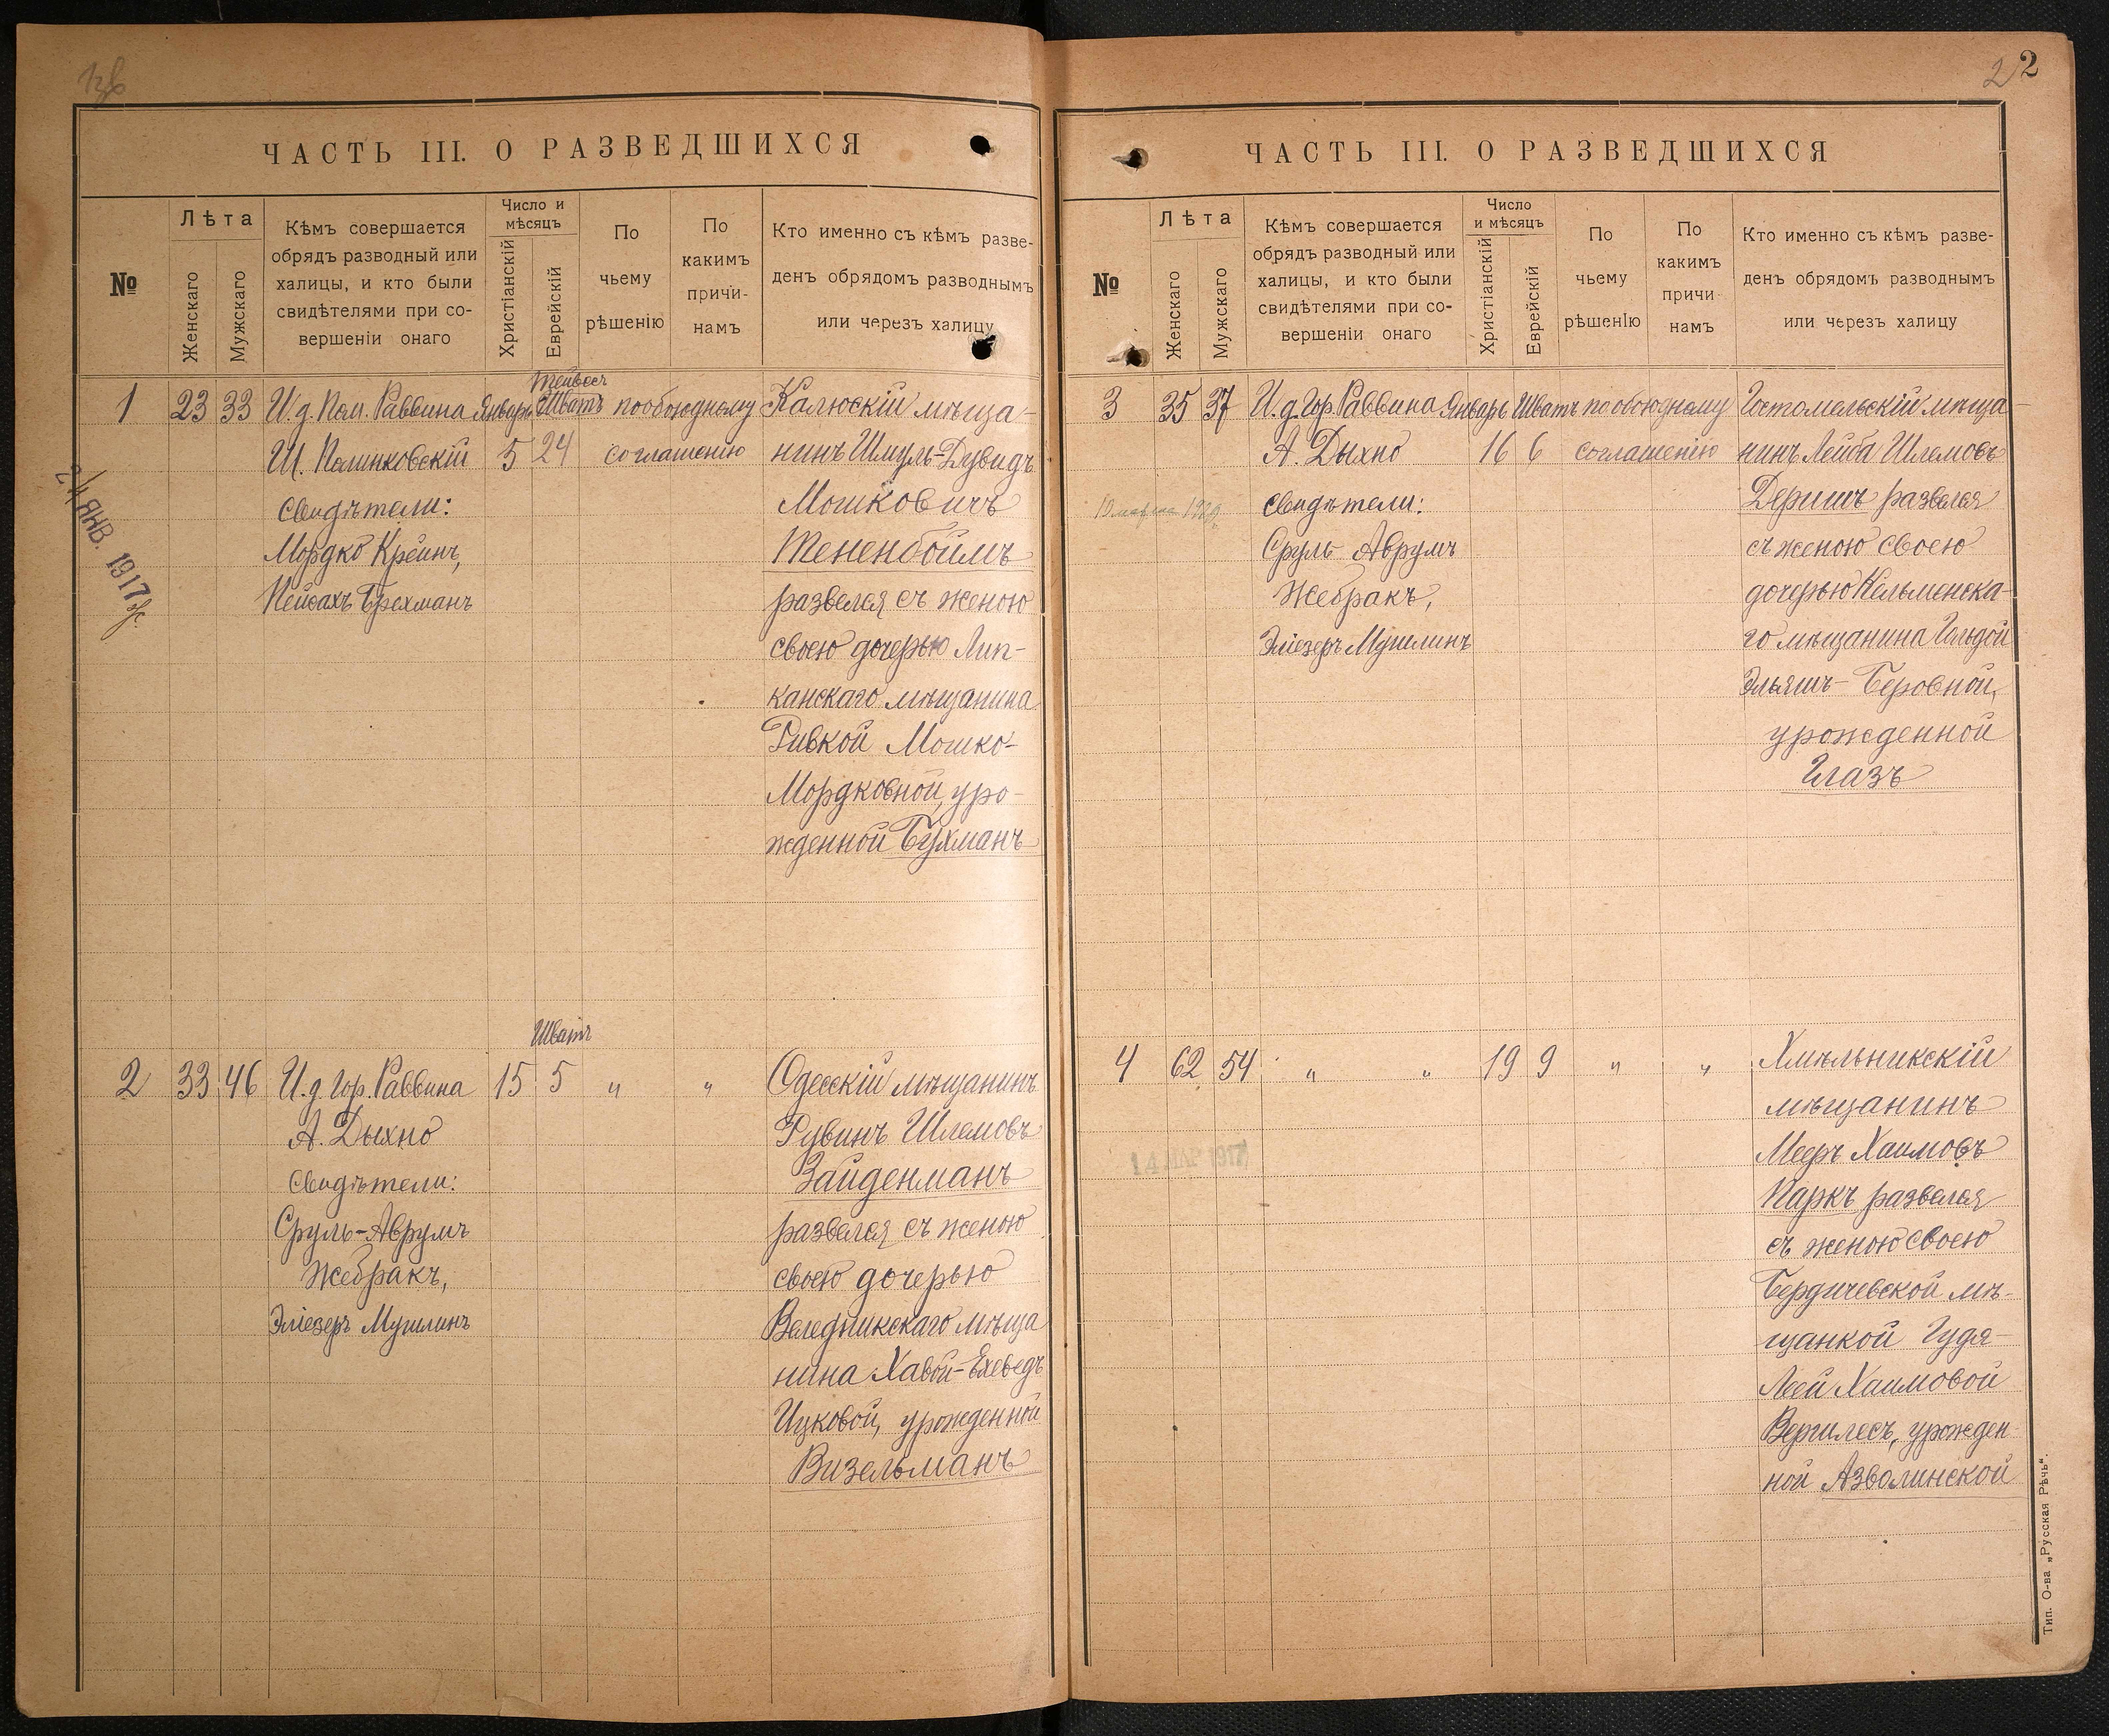 ЧАСТЬ III. О РАЗВЕДШИХСЯ
№
Лѣта
Женскаго
Мужскаго
Кѣмъ совершается
обрядъ разводный или
халицы, и кто были
свидѣтелями при со-
вершеніи онаго
Число и
мѣсяцъ
Христіанскій
Еврейскій
По
чьему
рѣшенію
По
какимъ
причи-
намъ
Кто именно съ кѣмъ разве-
денъ обрядомъ разводнымъ
или черезъ халицу
Тейвесъ
1 23 33 И.д. Пом. Раввина Январь Шватъ по обоюдному Калюскій мѣща-
Ш. Полинковскій 5 24 соглашенію нинъ Шмуль-Дувидъ
Свидѣтели: Мошковичъ
Мордко Крейнъ, Тененбоймъ
Пейсахъ Брехманъ развелся съ женою
24 ЯНВ. 1917
своею дочерью Лип-
канскаго мѣщанина
Ривкой Мошко-
Мордковной, уро-
жденной Бухманъ
Шватъ
2 33 46 И.д. Гор. Раввина 15 5 „ „ Одесскій мѣщанинъ
А. Дыхно Рувинъ Шлемовъ
Свидѣтели: Зайденманъ
Сруль-Аврумъ развелся съ женою
Жебракъ, своею дочерью
Эліезеръ Мушлинъ Веледникскаго мѣща
нина Хавой-Ехеведъ
Ицковой, урожденной
Визельманъ
2 2
ЧАСТЬ III. О РАЗВЕДШИХСЯ
№
Лѣта
Женскаго
Мужскаго
Кѣмъ совершается
обрядъ разводный или
халицы, и кто были
свидѣтелями при со-
вершеніи онаго
Число
и мѣсяцъ
Христіанскій
Еврейскій
По
чьему
рѣшенІю
По
какимъ
причи-
намъ
Кто именно съ кѣмъ разве-
денъ обрядомъ разводнымъ
или черезъ халицу
3 35 37 И.д. Гор. Раввина Январь Шватъ по обоюдному Гостомельскій мѣща-
А. Дыхно 16 6 соглашенію нинъ Лейба Шлемовъ
Свидѣтели: Деришъ развелся
Сруль Аврумъ съ женою своею
Жебракъ, дочерью Кельменска-
Эліезеръ Мушлинъ го мѣщанина Гольдой
Эльяшъ-Беровной,
урожденной
Глазъ
4 62 54 „ „ 19 9 „ „ Хмѣльникскій
мѣщанинъ
14 МАР 1917
Мееръ Хаимовъ
Паркъ развелся
съ женою своею
Бердичевской мѣ-
щанкой Гудя-
Леей Хаимовой
Вергилесъ, урожден-
ной Азволинской
Тип. О-ва „Русская Рѣчь“.